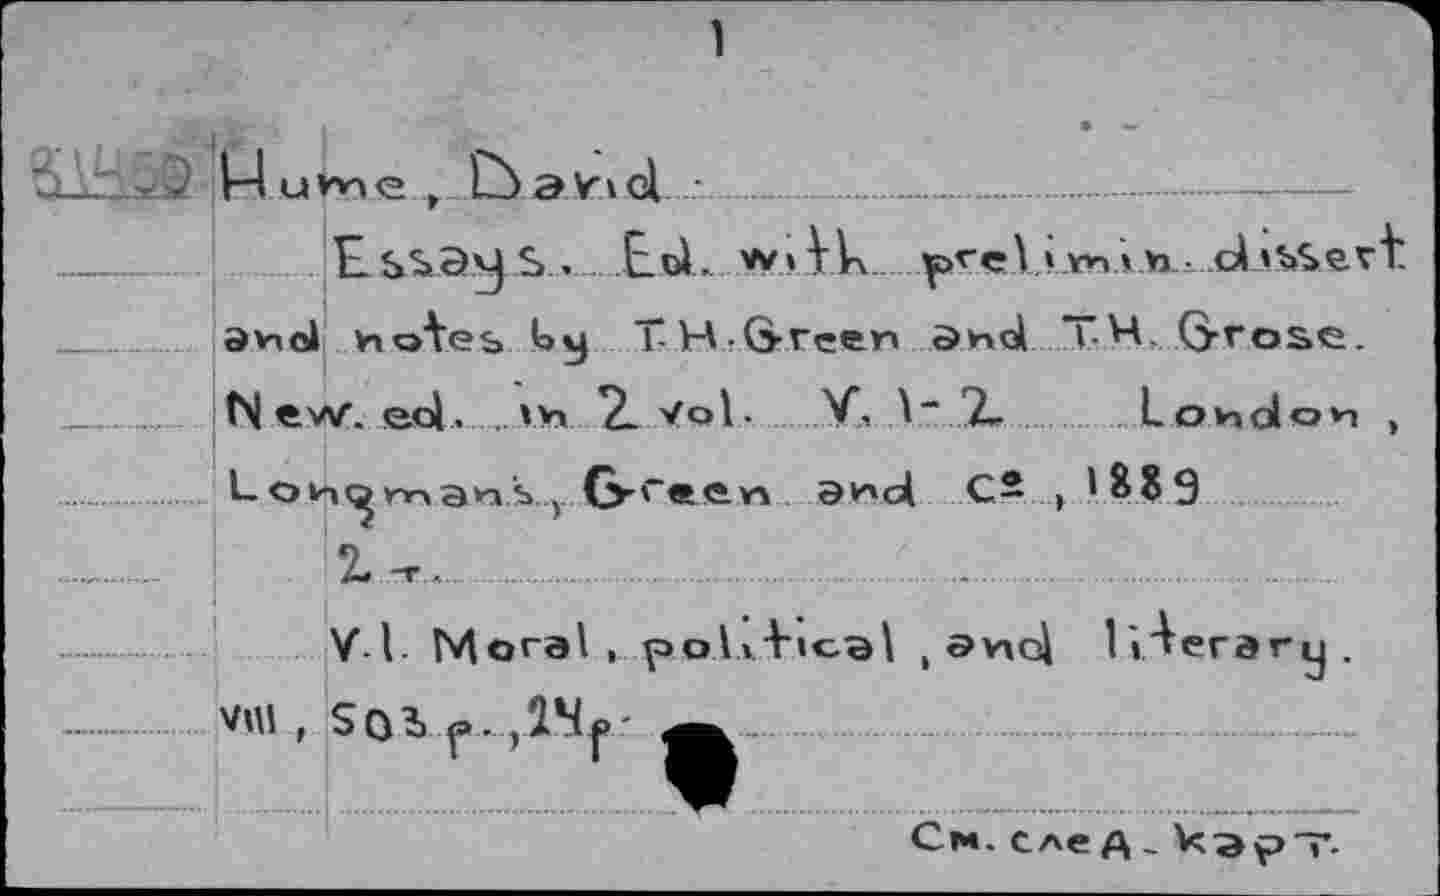 1
Hume, David.
Essays. Ed. with prelimin. dissert.
and notes by T.H.Green and T.H. Grose.
New. ed. in 2 vol. V. 1-2 London,
Longmans, Green and Cº, 1889
2 т.
V.1. Moral, political, and literary.
VIII, 503 p., 24 p.
См. след. карт.